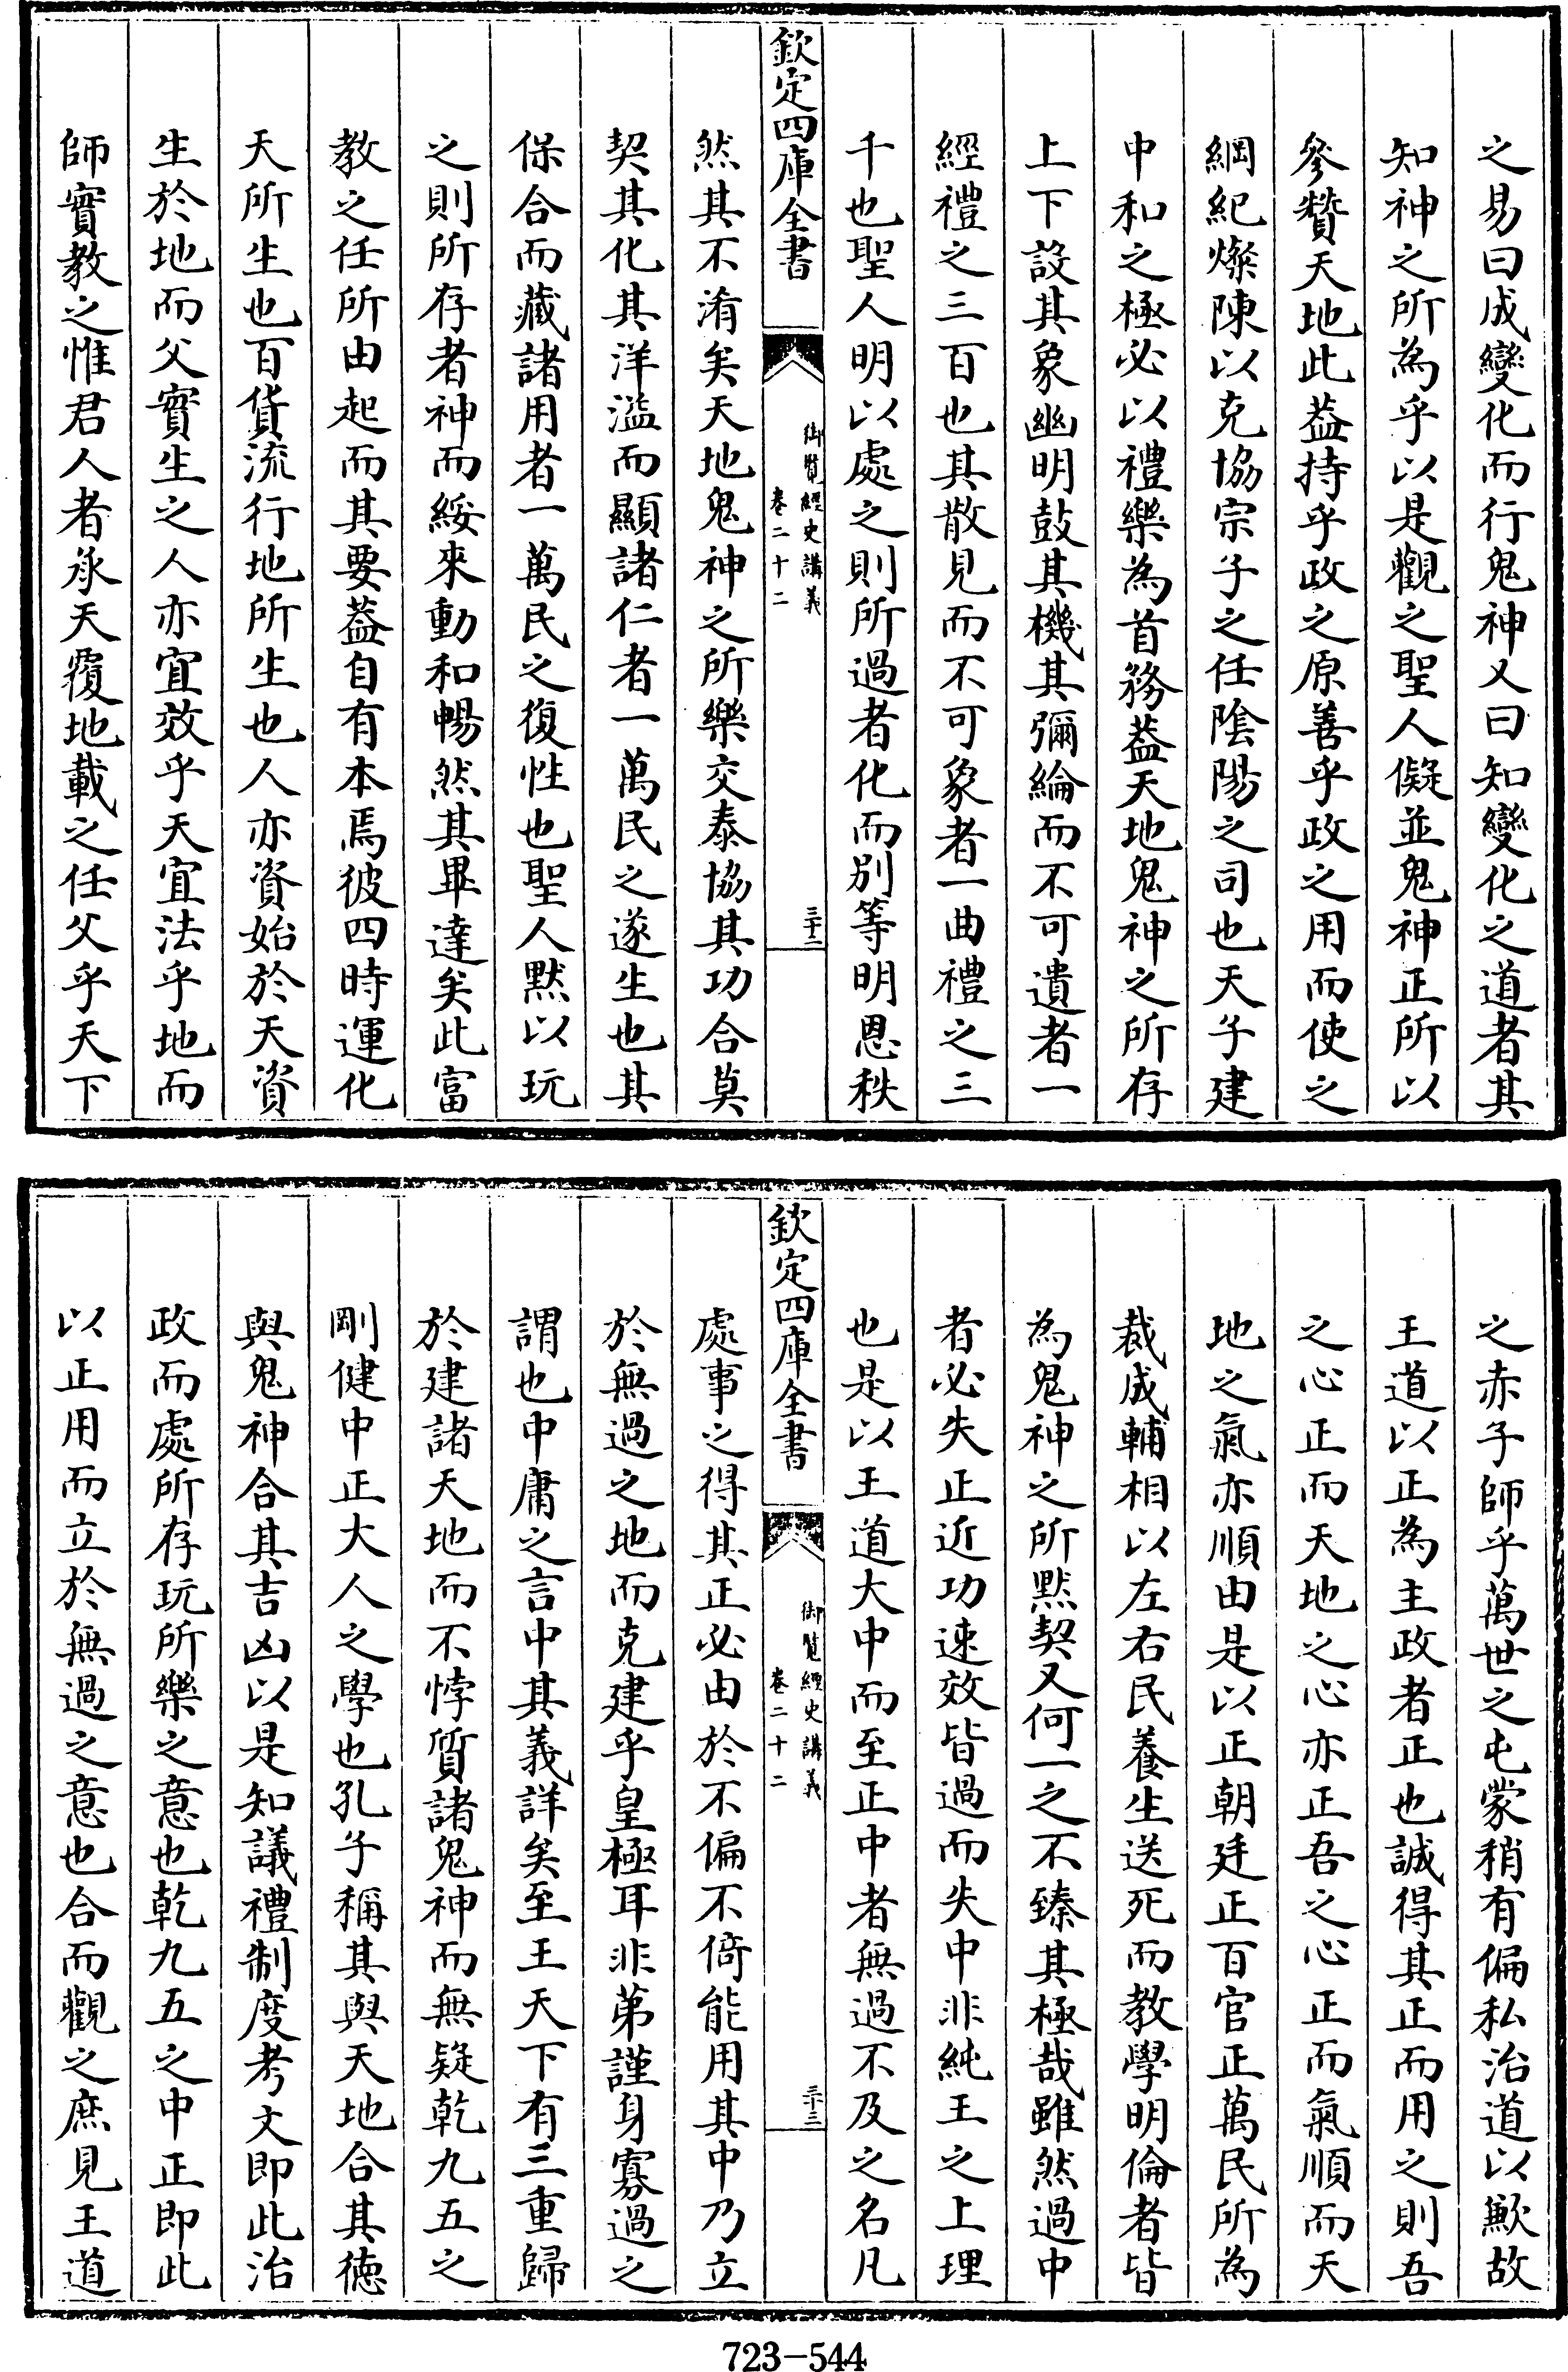 之易曰成變化而行鬼神又曰知變化之道者其
知神之所為乎以是觀之聖人儗並鬼神正所以
參贊天地此葢持乎政之原善乎政之用而使之
綱紀燦陳以克協宗子之任陰陽之司也天子建
中和之極必以禮樂為首務葢天地鬼神之所存
上下設其象幽明鼓其機其彌綸而不可遺者一
經禮之三百也其散見而不可象者一曲禮之三
千也聖人明以處之則所過者化而別等明恩秩
欽定四庫全書
御覽經史講義
卷二十二
三十二
然其不淆矣天地鬼神之所樂交泰協其功合莫
契其化其洋溢而顯諸仁者一萬民之遂生也其
保合而藏諸用者一萬民之復性也聖人默以玩
之則所存者神而綏來動和暢然其畢達矣此富
教之任所由起而其要葢自有本焉彼四時運化
天所生也百貨流行地所生也人亦資始於天資
生於地而父實生之人亦宜效乎天宜法乎地而
師實教之惟君人者承天覆地載之任父乎天下
之赤子師乎萬世之屯蒙稍有偏私治道以歉故
王道以正為主政者正也誠得其正而用之則吾
之心正而天地之心亦正吾之心正而氣順而天
地之氣亦順由是以正朝廷正百官正萬民所為
裁成輔相以左右民養生送死而教學明倫者皆
為鬼神之所默契又何一之不臻其極哉雖然過中
者必失正近功速效皆過而失中非純王之上理
也是以王道大中而至正中者無過不及之名凡
欽定四庫全書
御覽經史講義
卷二十二
三十三
處事之得其正必由於不偏不倚能用其中乃立
於無過之地而克建乎皇極耳非弟謹身寡過之
謂也中庸之言中其義詳矣至王天下有三重歸
於建諸天地而不悖質諸鬼神而無疑乾九五之
剛健中正大人之學也孔子稱其與天地合其德
與鬼神合其吉凶以是知議禮制度考文即此治
政而處所存玩所樂之意也乾九五之中正即此
以正用而立於無過之意也合而觀之庶見王道
723-544